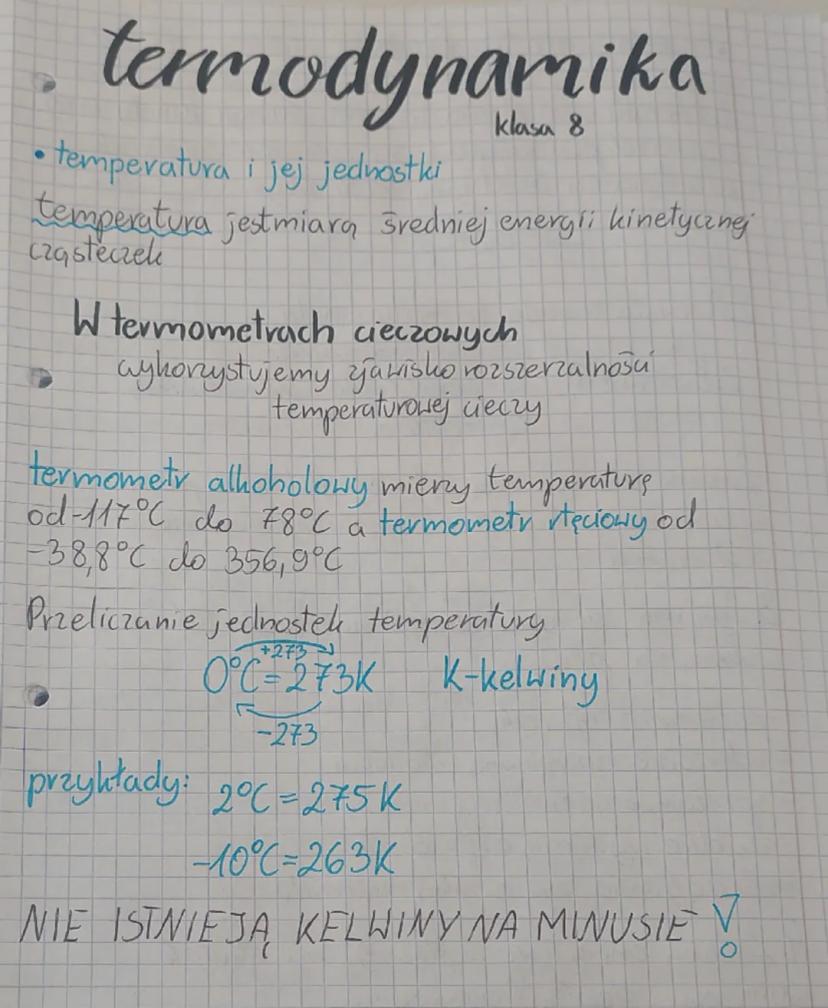 termodynamika
klasa 8
• temperatura i jej jednostki
temperatura jest miarą średniej energii kinetycznej
cząsteczek
W termometrach cieczowych
wykorzystujemy zjawisko rozszerzalności
temperaturowej cieczy
termometr alkoholowy mierzy temperaturę
od -117°C do 78°C a termometr rtęciowy od
-38,8°C do 356,9°C
Przeliczanie jednostek temperatury
+273
0°C = 273K K-kelwiny
-273
przykłady: 2°C = 275K
-10°C = 263K
NIE ISTNIEJĄ KELWINY NA MINUSIE !